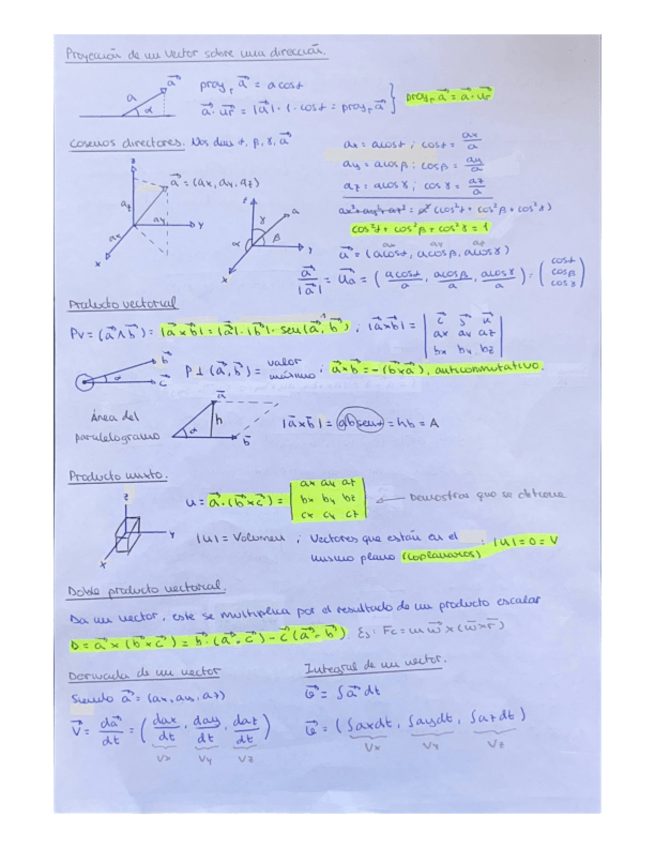 Proyección de un vector sobre una dirección.
proy_r a⃗ = a cosα
a⃗ · u⃗r = |a⃗| · 1 · cosα = proy_r a⃗ } proy_r a⃗ = a⃗ · u⃗r
a a⃗ α
Cosenos directores. Nos dan α, β, γ, a⃗
ax = a cosα ; cosα = ax/a
ay = a cosβ ; cosβ = ay/a
az = a cosγ ; cosγ = az/a
ax²+ay²+az² = a² (cos²α + cos²β + cos²γ)
cos²α + cos²β + cos²γ = 1
z a⃗ = (ax, ay, az)
az ay ax x y
z γ a α β y x
ax ay az
a⃗ = (a cosα, a cosβ, a cosγ)
a⃗/|a⃗| = u⃗a = (a cosα/a, a cosβ/a, a cosγ/a) = (cosα cosβ cosγ)
Producto vectorial
Pv = (a⃗ ∧ b⃗) = |a⃗ x b⃗| = |a⃗| · |b⃗| · sen(a⃗, b⃗) ; |a⃗ x b⃗| =
ax ay az
bx by bz
b⃗ α c⃗
P ⊥ (a⃗, b⃗) = valor máximo ; a⃗ x b⃗ = -(b⃗ x a⃗), anticonmutativo.
Área del
paralelogramo
a⃗ h α b⃗
|a⃗ x b⃗| = ab senα = hb = A
Producto mixto.
z y x
u = a⃗ · (b⃗ x c⃗) =
ax ay az
bx by bz
cx cy cz
← Demostrar que se obtiene
|u| = Volumen ; Vectores que están en el : |u| = 0 = V
mismo plano (coplanarios)
Doble producto vectorial.
Da un vector, este se multiplica por el resultado de un producto escalar
D = a⃗ x (b⃗ x c⃗) = b⃗ · (a⃗ · c⃗) - c⃗ (a⃗ · b⃗). Ej: Fc = m w⃗ x (w⃗ x r⃗)
Derivada de un vector
Siendo a⃗ = (ax, ay, az)
V⃗ = da⃗/dt = (dax/dt, day/dt, daz/dt)
Vx Vy Vz
Integral de un vector.
= ∫a⃗ dt
= (∫axdt, ∫aydt, ∫azdt)
Vx Vy Vz